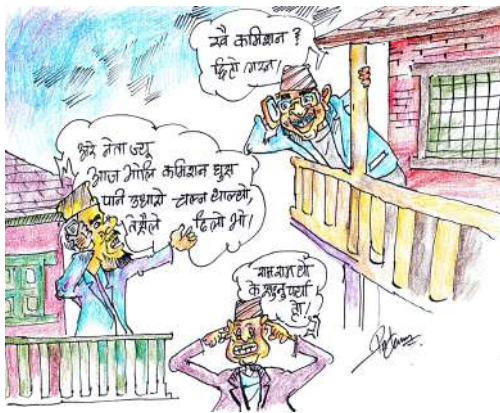 खै कमिशन ?
ढिलो गरन!
अरे नेता ज्यू
आज भोलि कमिशन घुस
पनि उधारो चल्न थाल्यो,
तेसैले ढिलो भो!
राम राम यो
के सुन्नु पर्यो
हो!